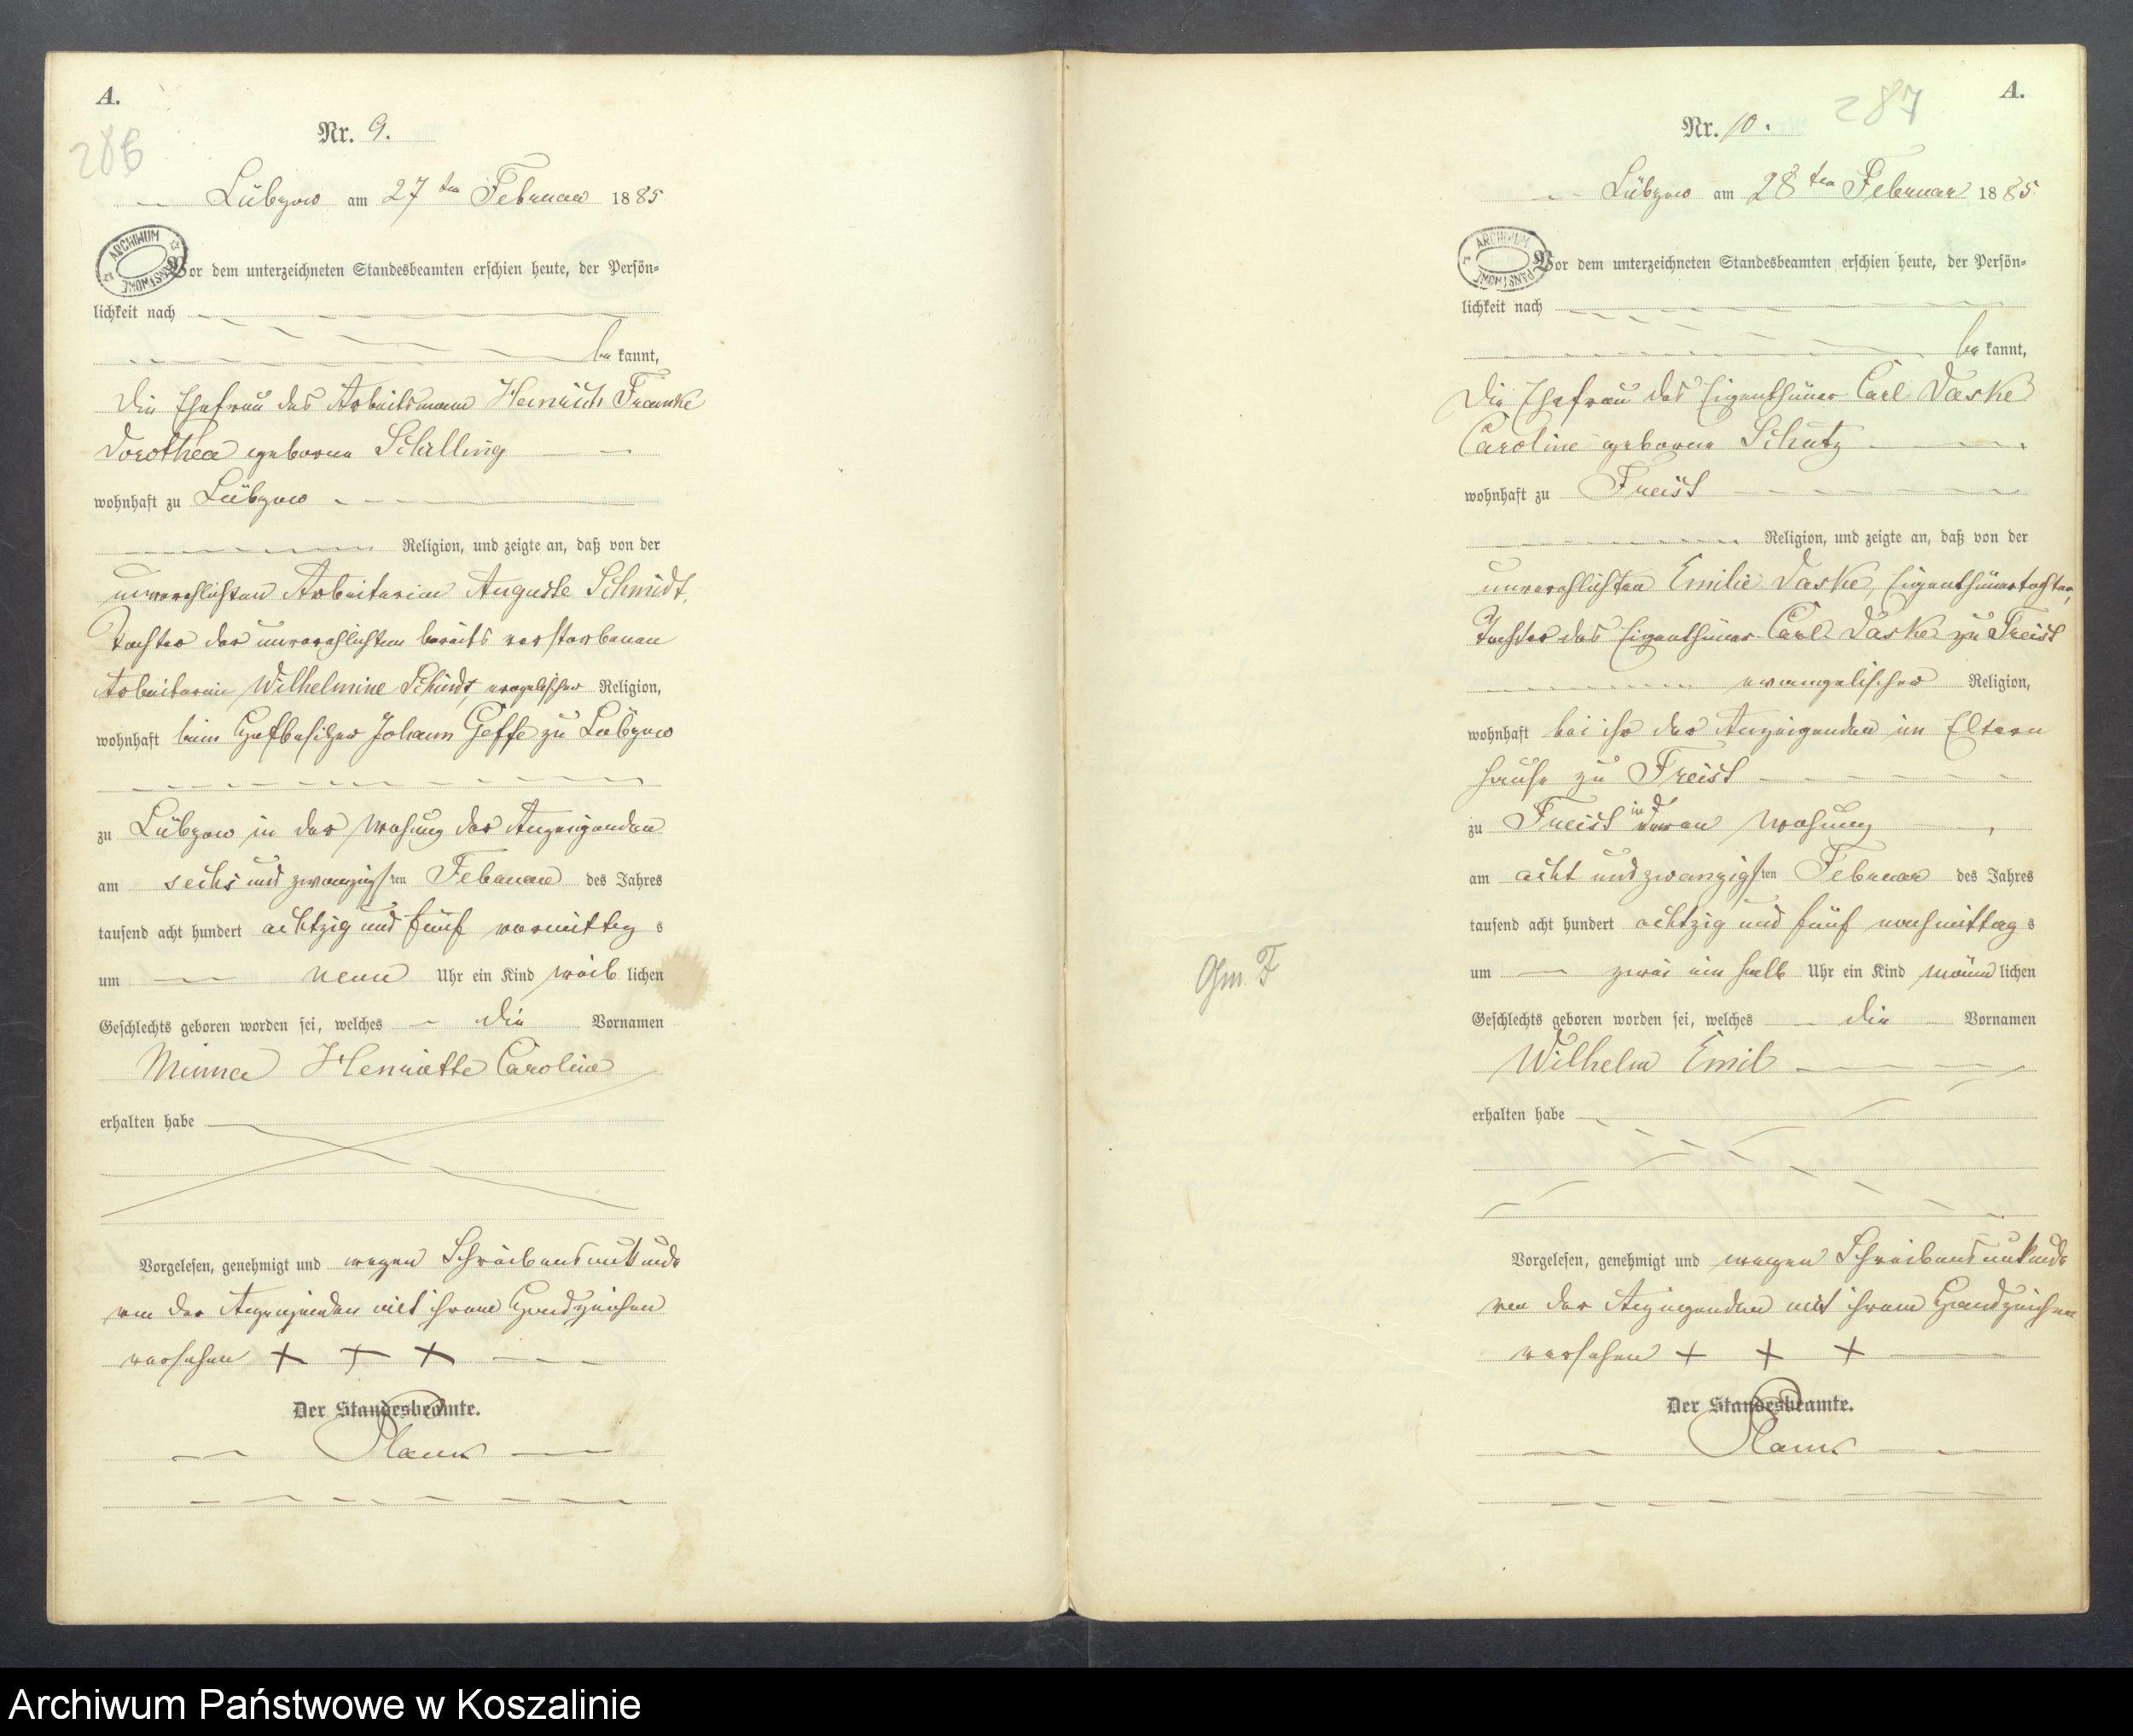 A.
286
Nr. 9.
Lübzow am 27ten Februar 1885
ARCHIWUM PAŃSTWOWE
Vor dem unterzeichneten Standesbeamten erschien heute, der Persön-
lichkeit nach
be kannt,
die Ehefrau des Arbeitsmann Heinrich Framke
Dorothea geborne Schilling
wohnhaft zu Lübzow
Religion, und zeigte an, daß von der
unverehlichten Arbeiterin Auguste Schmidt,
Tochter der unverehlichten bereits verstorbenen
Arbeiterin Wilhelmine Schmidt, evangelischer Religion,
wohnhaft beim Hofbesitzer Johann Geffe zu Lübzow
zu Lübzow in der Wohung der Anzeigenden
am sechs und zwanzigsten Februar des Jahres
tausend acht hundert achtzig und fünf vormittag s
um neun Uhr ein Kind weib lichen
Geschlechts geboren worden sei, welches die Vornamen
Minna Henriette Caroline
erhalten habe
Vorgelesen, genehmigt und wegen Schreibensunkunde
von der Anzeigenden mit ihrem Handzeichen
versehen + + +
Der Standesbeamte.
A.
287
Nr. 10.
Lübzow am 28ten Februar 1885
ARCHIWUM PAŃSTWOWE
Vor dem unterzeichneten Standesbeamten erschien heute, der Persön-
lichkeit nach
be kannt,
Die Ehefrau des Eigenthümer Carl Daske
Caroline geborne Schütz
wohnhaft zu Freist
Religion, und zeigte an, daß von der
unverehlichten Emilie Daske, Eigenthümertochter,
Tochter des Eigenthümer Carl Daske zu Freist
evangelischer Religion,
wohnhaft bei ihr der Anzeigenden im Eltern
hause zu Freist
zu Freist in deren Wohung
am acht und zwanzigsten Februar des Jahres
tausend acht hundert achtzig und fünf nachmittag s
um zwei ein halb Uhr ein Kind männ lichen
Geschlechts geboren worden sei, welches die Vornamen
Wilhelm Emil
erhalten habe
Vorgelesen, genehmigt und wegen Schreibensunkunde
von der Anzeigenden mit ihrem Handzeichen
versehen + + +
Der Standesbeamte.
Archiwum Państwowe w Koszalinie